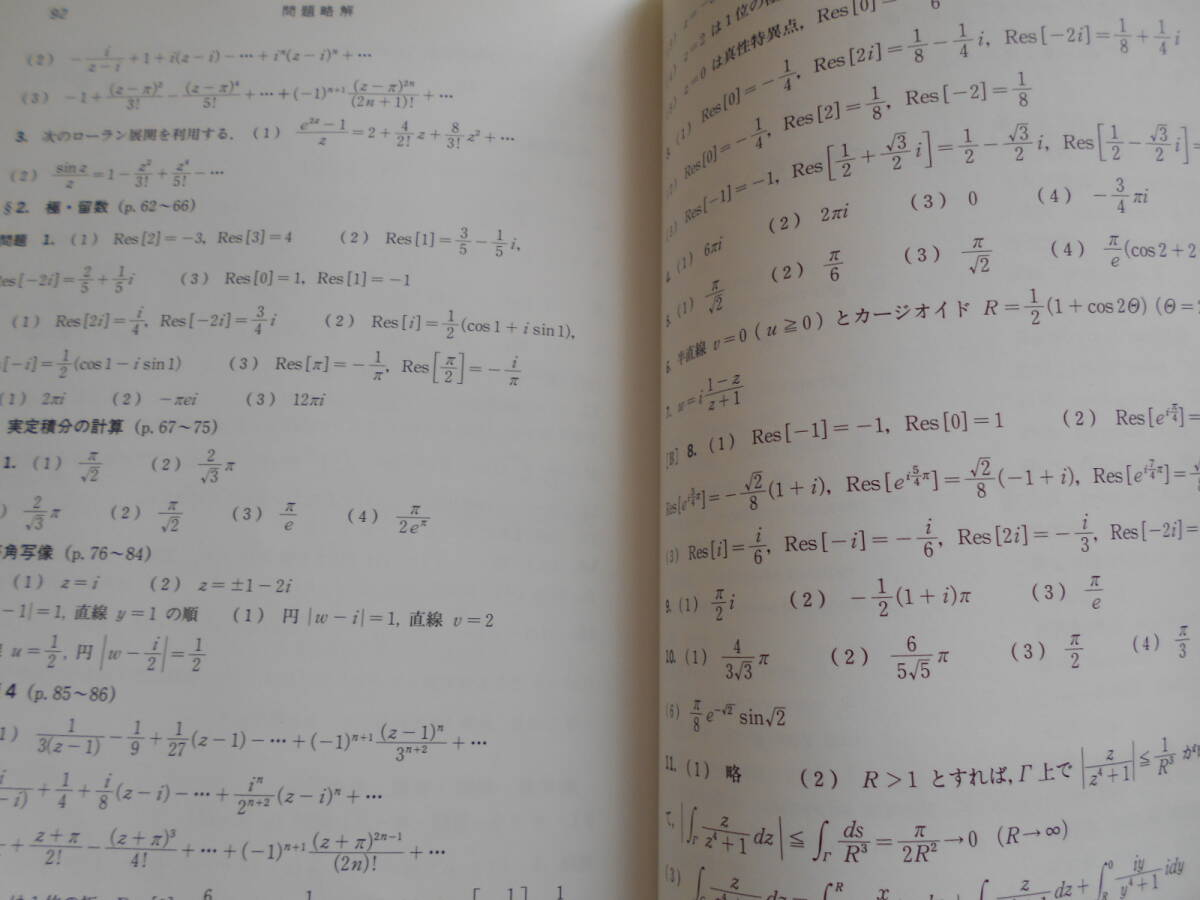 92 問題略解
(2) −i/(z−i)+1+i(z−i)−⋯+iⁿ(z−i)ⁿ+⋯
(3) −1+(z−π)²/3!−(z−π)⁴/5!+⋯+(−1)ⁿ⁺¹(z−π)²ⁿ/(2n+1)!+⋯
3. 次のローラン展開を利用する. (1) (e²ᶻ−1)/z=2+4/2! z+8/3! z²+⋯
(2) sin z/z=1−z²/3!+z⁴/5!−⋯
§2. 極・留数 (p.62〜66)
問題 1. (1) Res[2]=−3, Res[3]=4 (2) Res[1]=3/5−1/5 i,
Res[−2i]=2/5+1/5 i (3) Res[0]=1, Res[1]=−1
(1) Res[2i]=i/4, Res[−2i]=3/4 i (2) Res[i]=1/2(cos1+i sin1),
[−i]=1/2(cos1−i sin1) (3) Res[π]=−1/π, Res[π/2]=−i/π
(1) 2πi (2) −πei (3) 12πi
実定積分の計算 (p.67〜75)
1. (1) π/√2 (2) 2/√3 π
) 2/√3 π (2) π/√2 (3) π/e (4) π/2eπ
角写像 (p.76〜84)
(1) z=i (2) z=±1−2i
−1|=1, 直線 y=1 の順 (1) 円 |w−i|=1, 直線 v=2
u=1/2, 円 |w−i/2|=1/2
4 (p.85〜86)
1) 1/3(z−1)−1/9+1/27(z−1)−⋯+(−1)ⁿ⁺¹(z−1)ⁿ/3ⁿ⁺²+⋯
−i)+1/4+i/8(z−i)−⋯+iⁿ/2ⁿ⁺²(z−i)ⁿ+⋯
+(z+π)/2!−(z+π)³/4!+⋯+(−1)ⁿ⁺¹(z+π)²ⁿ⁻¹/(2n)!+⋯
z=2 は1位の極
z=0 は真性特異点, Res[0]=
(1) Res[0]=−1/4, Res[2i]=1/8−1/4 i, Res[−2i]=1/8+1/4 i
(2) Res[0]=−1/4, Res[2]=1/8, Res[−2]=1/8
(3) Res[−1]=−1, Res[1/2+√3/2 i]=1/2−√3/2 i, Res[1/2−√3/2 i]=
4. (1) 6πi (2) 2πi (3) 0 (4) −3/4 πi
5. (1) π/√2 (2) π/6 (3) π/√2 (4) π/e(cos2+2
6. 半直線 v=0 (u≧0) とカージオイド R=1/2(1+cos2Θ) (Θ=
7. w=i(1−z)/(z+1)
[B] 8. (1) Res[−1]=−1, Res[0]=1 (2) Res[e^{iπ/4}]=
Res[e^{i3/4π}]=−√2/8(1+i), Res[e^{i5/4π}]=√2/8(−1+i), Res[e^{i7/4π}]=
(3) Res[i]=i/6, Res[−i]=−i/6, Res[2i]=−i/3, Res[−2i]=
9. (1) π/2 i (2) −1/2(1+i)π (3) π/e
10. (1) 4/3√3 π (2) 6/5√5 π (3) π/2 (4) π/3
(6) π/8 e^{−√2} sin√2
11. (1) 略 (2) R>1 とすれば, Γ上で |z/(z⁴+1)|≦1/R³ が
て, |∫_Γ z/(z⁴+1) dz|≦∫_Γ ds/R³=π/2R²→0 (R→∞)
(3)